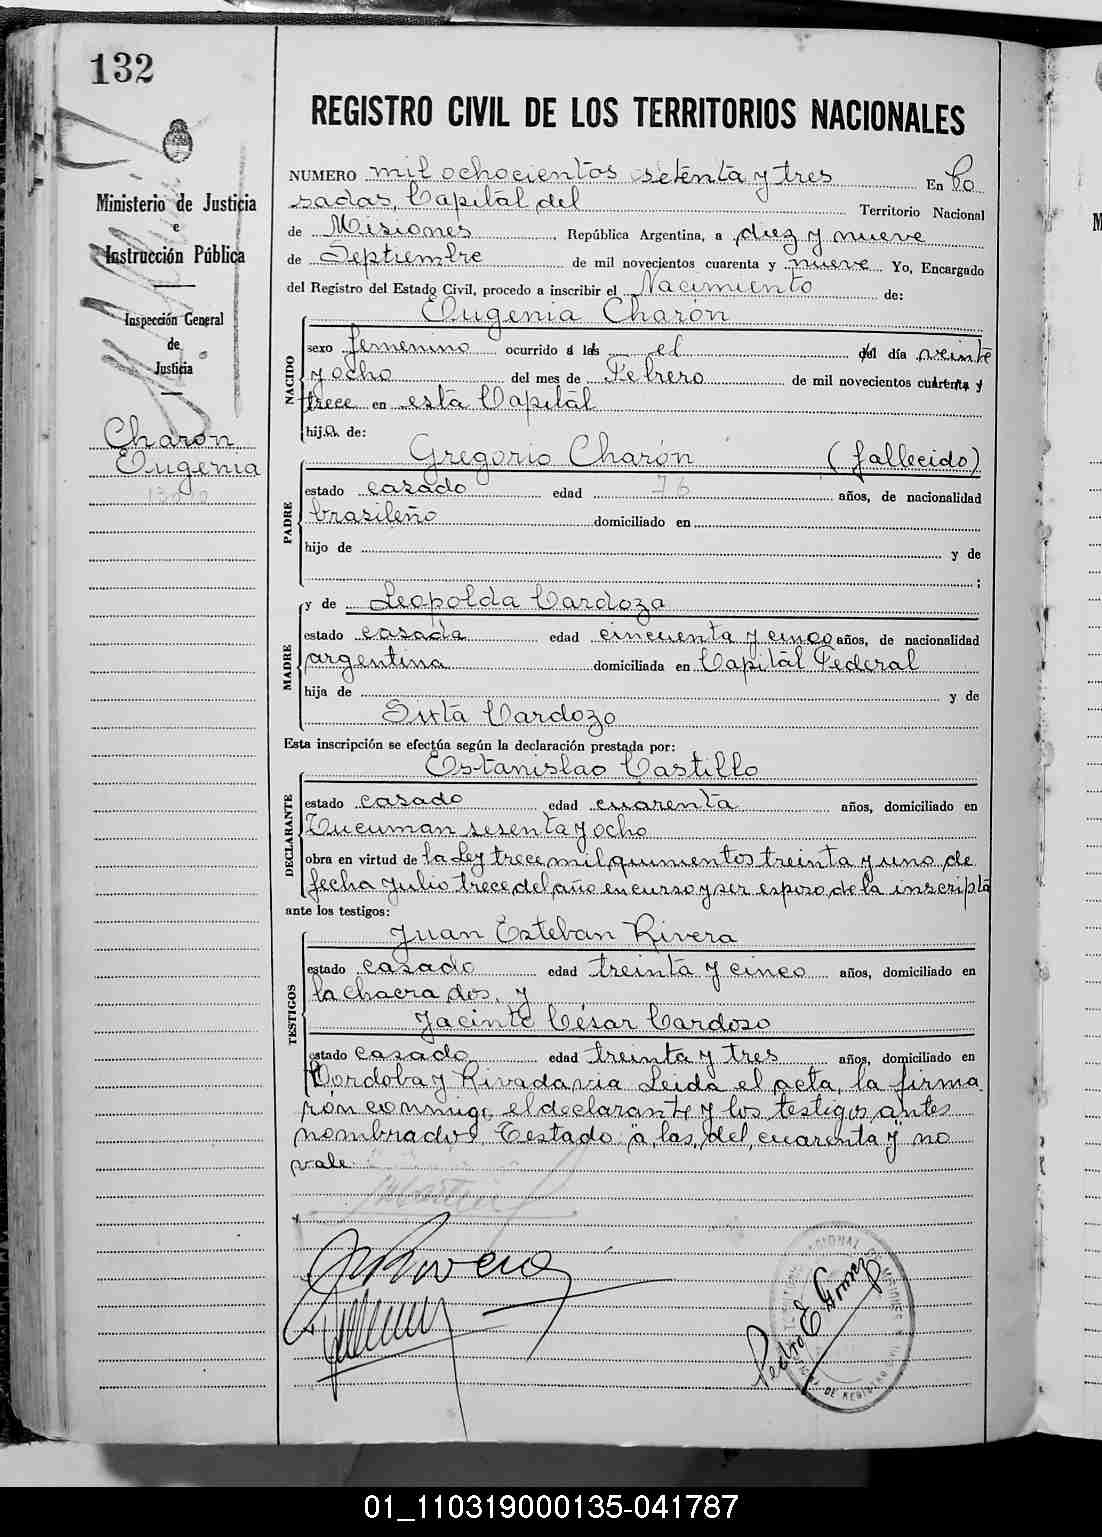 132
REGISTRO CIVIL DE LOS TERRITORIOS NACIONALES
Ministerio de Justicia
e
Instrucción Pública
Inspección General
de
Justicia
Charón
Eugenia
NUMERO mil ochocientos setenta y tres En Po
sadas, Capital del Territorio Nacional
de Misiones, República Argentina, a diez y nueve
de Septiembre de mil novecientos cuarenta y nueve Yo, Encargado
del Registro del Estado Civil, procedo a inscribir el Nacimiento de:
NACIDO
Eugenia Charón
sexo femenino ocurrido á las el del día veinte
y ocho del mes de Febrero de mil novecientos cuarenta y
trece en esta Capital
hija de:
PADRE
Gregorio Charón (fallecido)
estado casado edad 76 años, de nacionalidad
brasileño domiciliado en
hijo de y de
;
MADRE
y de Leopolda Cardozo
estado casada edad cincuenta y cinco años, de nacionalidad
argentina domiciliada en Capital Federal
hija de y de
Sixta Cardozo
Esta inscripción se efectúa según la declaración prestada por:
DECLARANTE
Estanislao Castillo
estado casado edad cuarenta años, domiciliado en
Tucuman sesenta y ocho
obra en virtud de la Ley trece mil quinientos treinta y uno de
fecha Julio trece del año en curso y ser esposo de la inscripta
ante los testigos:
TESTIGOS
Juan Esteban Rivera
estado casado edad treinta y cinco años, domiciliado en
la chacra dos, y
Jacinto César Cardozo
estado casado edad treinta y tres años, domiciliado en
Cordoba y Rivadavia Leida el acta, la firma
rón conmigo, el declarante y los testigos antes
nombrados. Testado "a las, del, cuarenta y" no
vale.
Pedro E Gomez
01_110319000135-041787